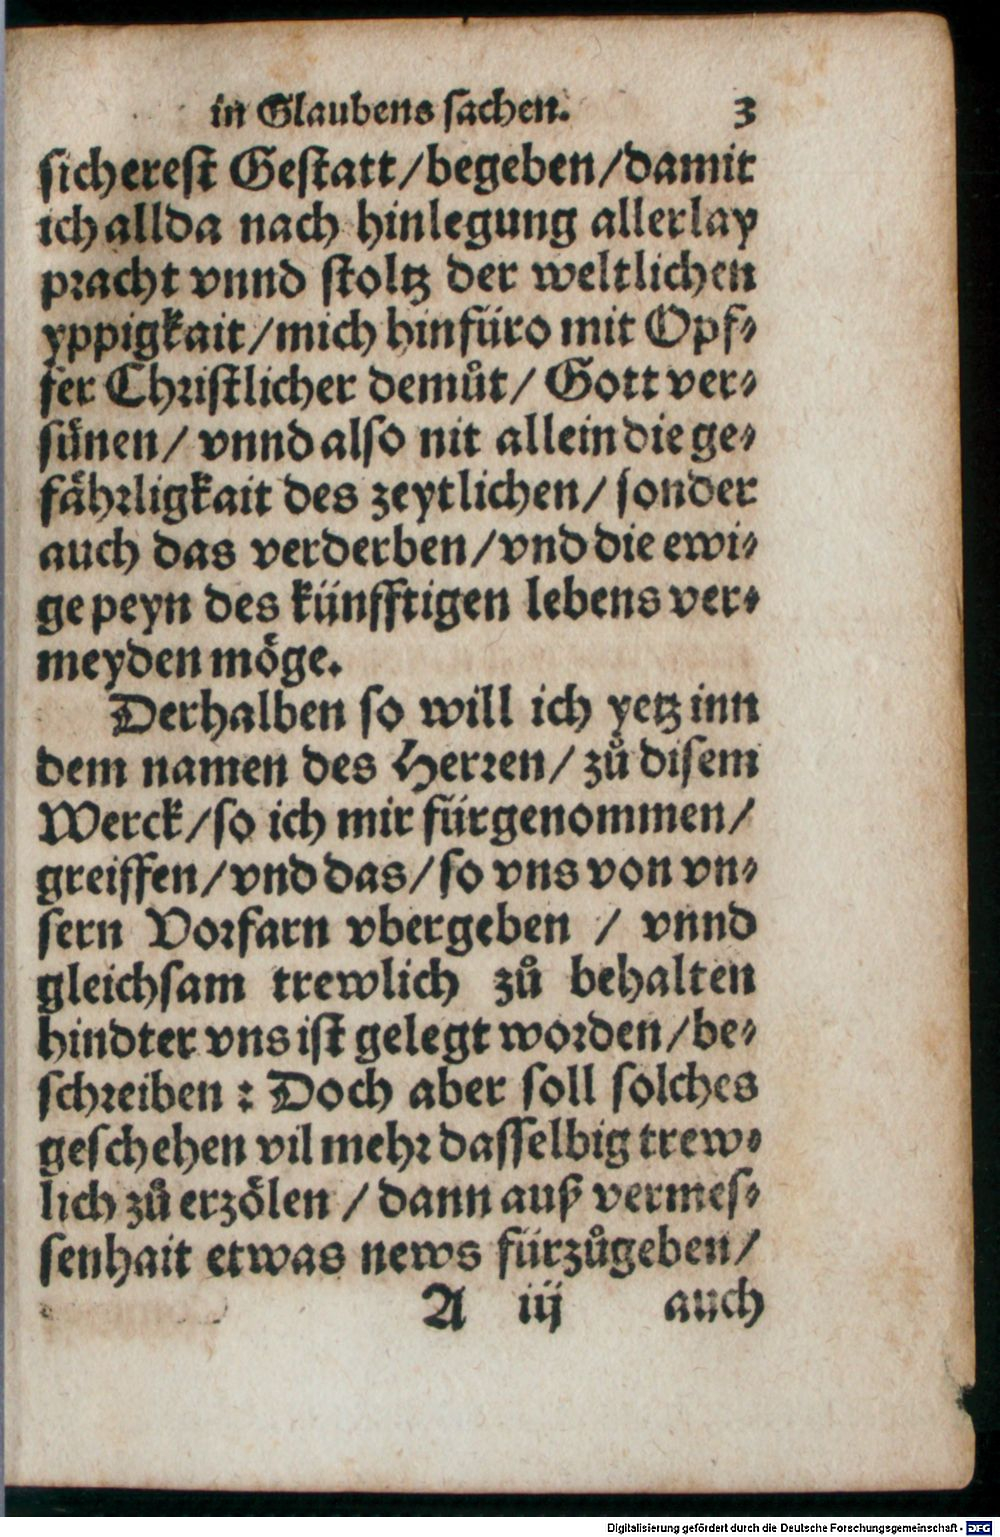 in Glaubens sachen. 3
sicherest Gestatt / begeben / damit
ich allda nach hinlegung allerlay
pracht vnnd stoltz der weltlichen
yppigkait / mich hinfüro mit Opf⸗
fer Christlicher demůt / Gott ver⸗
sünen / vnnd also nit allein die ge⸗
fährligkait des zeytlichen / sonder
auch das verderben / vnd die ewi⸗
ge peyn des künfftigen lebens ver⸗
meyden möge.
Derhalben so will ich yetz inn
dem namen des Herren / zů disem
Werck / so ich mir fürgenommen /
greiffen / vnd das / so vns von vn⸗
sern Vorfarn vbergeben / vnnd
gleichsam trewlich zů behalten
hindter vns ist gelegt worden / be⸗
schreiben : Doch aber soll solches
geschehen vil mehr dasselbig trew⸗
lich zů erzölen / dann auß vermes⸗
senhait etwas news fürzůgeben /
A iij auch
Digitalisierung gefördert durch die Deutsche Forschungsgemeinschaft - DFG